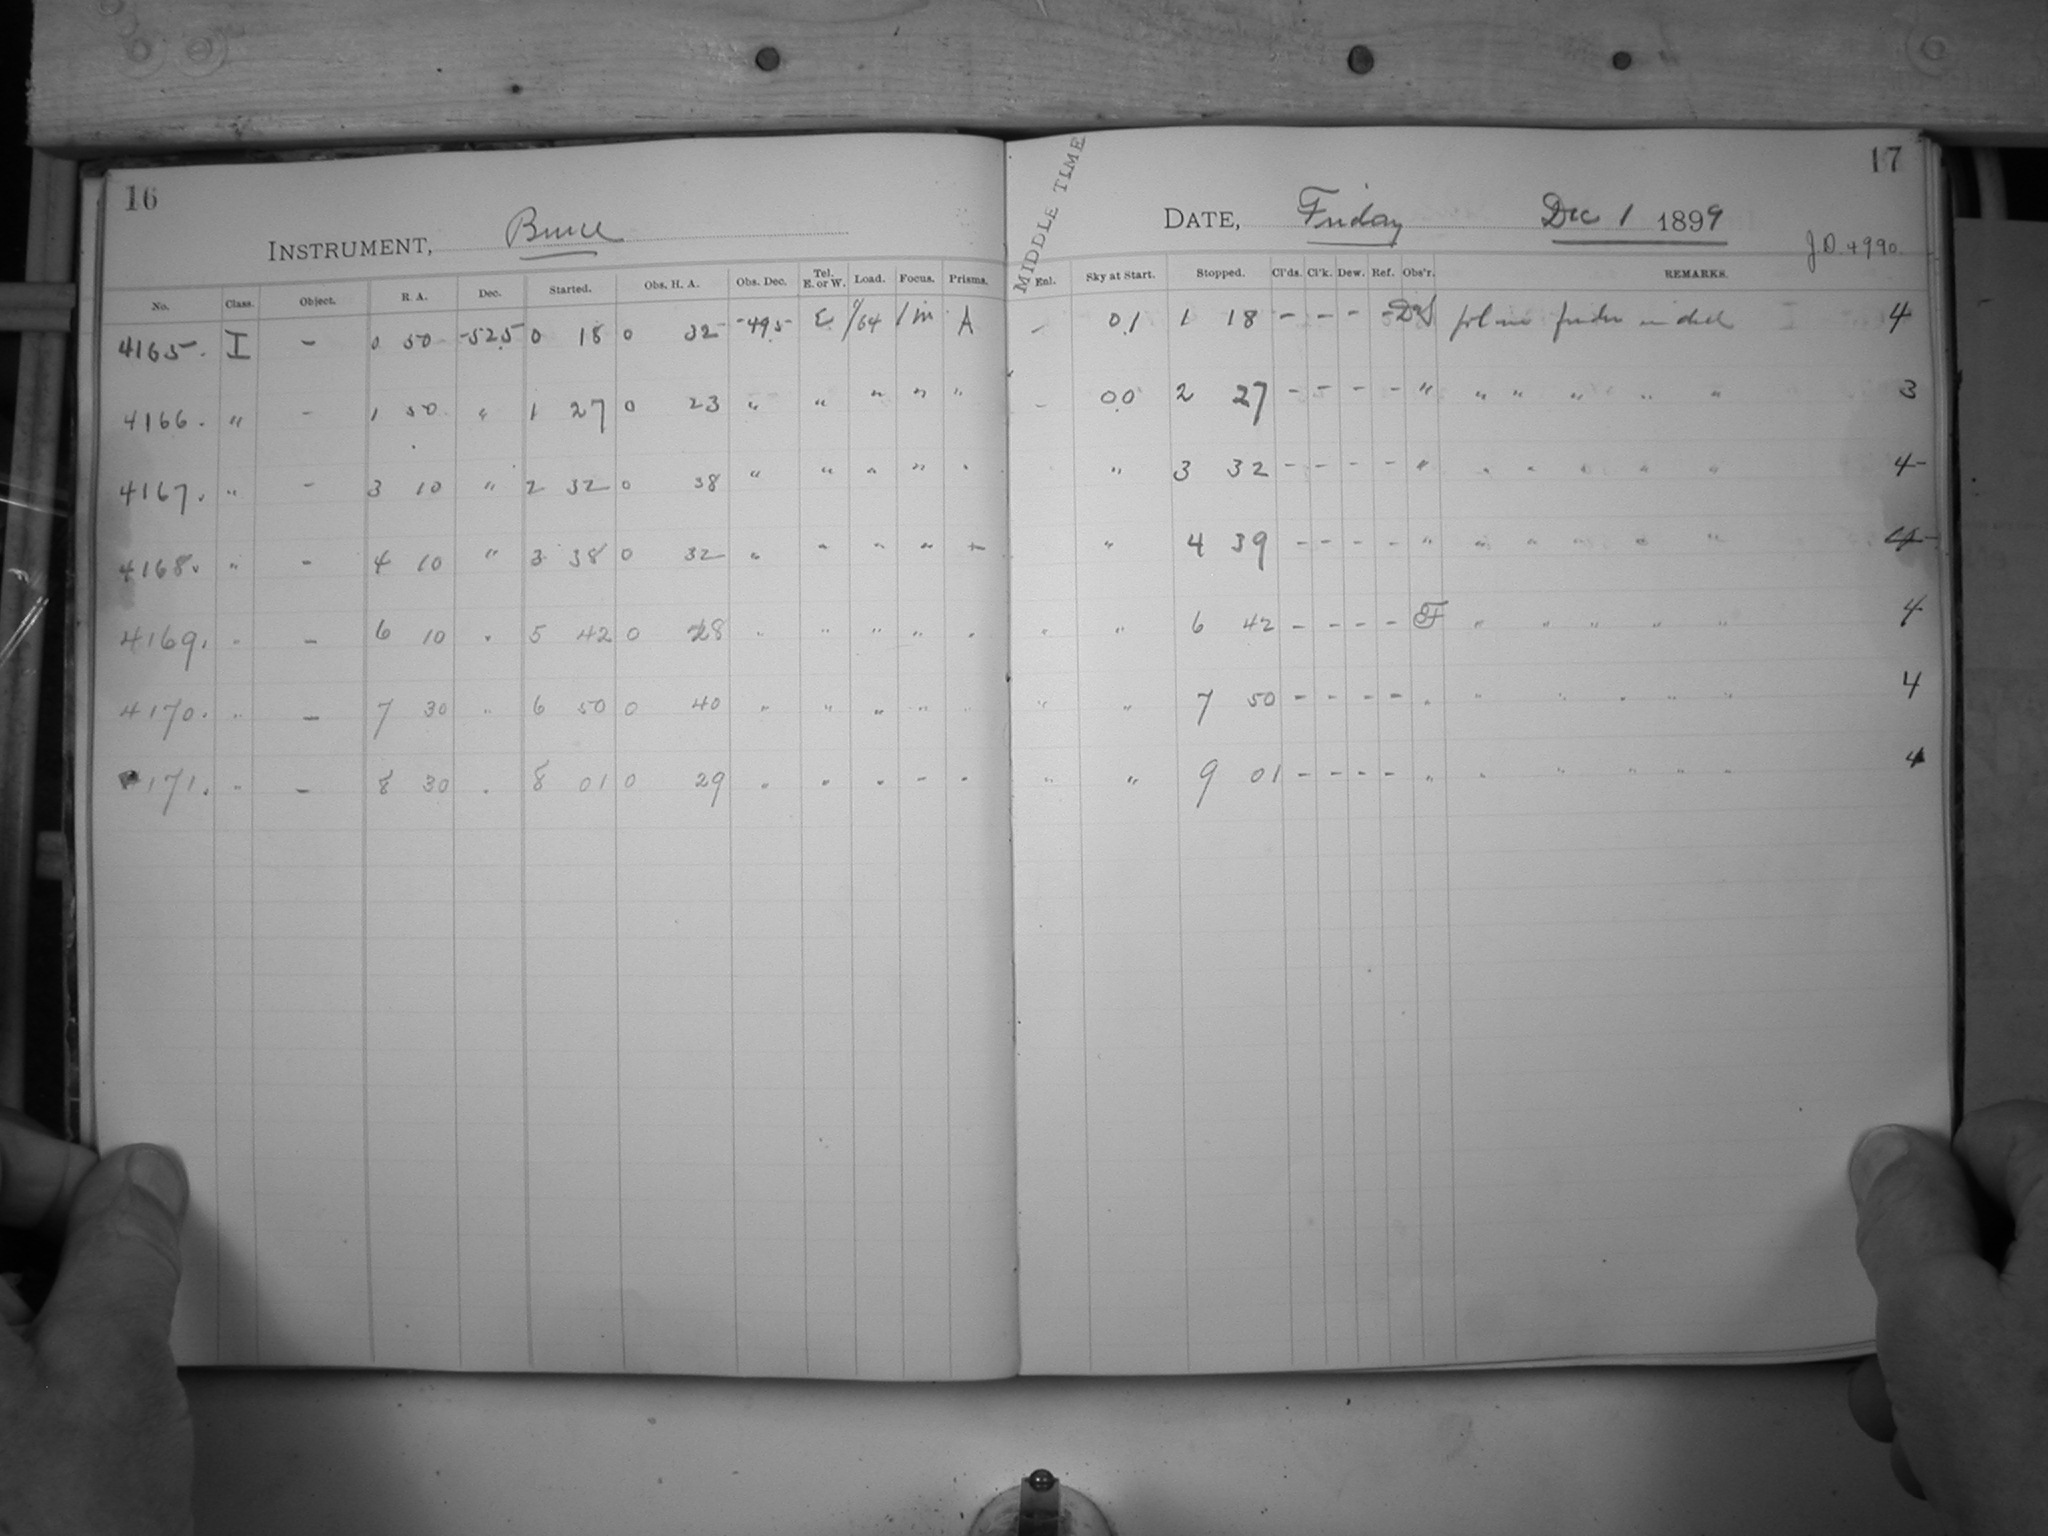 16
INSTRUMENT, Bruce
No. Class. Object. R. A. Dec. Started. Obs. H. A. Obs. Dec. Tel. E. or W. Load. Focus. Prisms.
4165. I - 0 50 -52.5 0 18 0 32 -49.5 E 1/64 1 in A
4166. " - 1 50 " 1 27 0 23 " " " " "
4167. " - 3 10 " 2 32 0 38 " " " " "
4168. " - 4 10 " 3 38 0 32 " " " " "
4169. " - 6 10 " 5 42 0 28 " " " " "
4170. " - 7 30 " 6 50 0 40 " " " " "
4171. " - 8 30 " 8 01 0 29 " " " " "
17
MIDDLE TIME
DATE, Friday Dec 1 1899
J.D. 4990.
Enl. Sky at Start. Stopped. Cl'ds. Cl'k. Dew. Ref. Obs'r. REMARKS.
- 0.1 1 18 - - - - 4
- 0.0 2 27 - - - - " " " " " " 3
" 3 32 - - - - " " " " " " 4-
" 4 39 - - - - " " " " " " 4-
" " 6 42 - - - - " " " " " 4
" " 7 50 - - - - " " " " " " 4
" " 9 01 - - - - " " " " " " 4